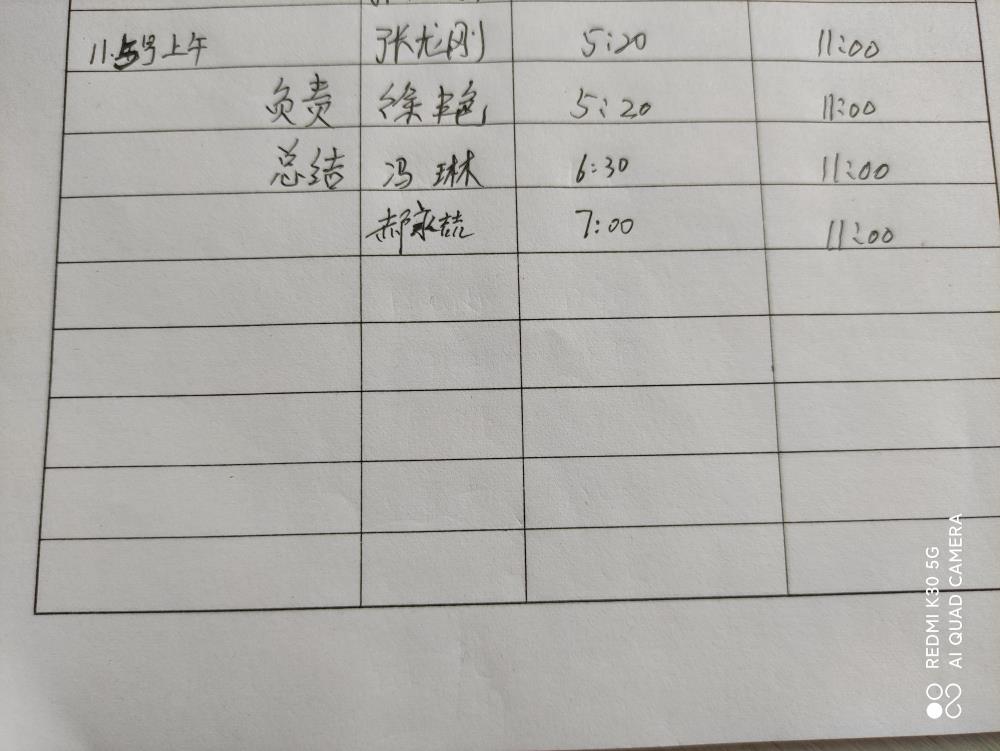 11.5号上午 张龙刚 5:20 11:00
负责 徐艳 5:20 11:00
总结 冯琳 6:30 11:00
郝永喆 7:00 11:00
REDMI K30 5G
AI QUAD CAMERA